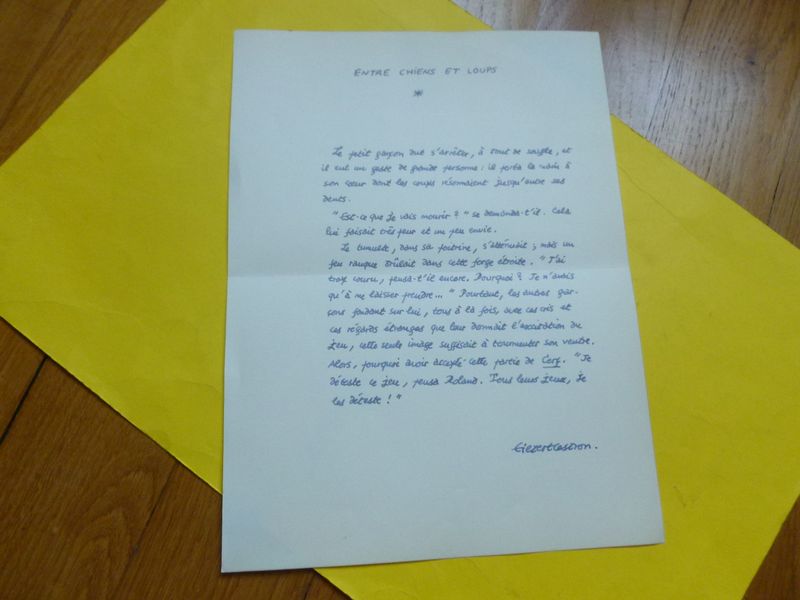 ENTRE CHIENS ET LOUPS
*
Le petit garçon dut s'arrêter, à bout de souffle, et
il eut un geste de grande personne : il porta la main à
son cœur dont les coups résonnaient jusqu'entre ses
dents.
"Est-ce que je vais mourir ?" se demanda-t'il. Cela
lui faisait très peur et un peu envie.
Le tumulte, dans sa poitrine, s'atténuait ; mais un
feu rauque brûlait dans cette forge étroite. "J'ai
trop couru, pensa-t'il encore. Pourquoi ? Je n'avais
qu'à me laisser prendre..." Pourtant, les autres gar-
çons fondant sur lui, tous à la fois, avec ces cris et
ces regards étranges que leur donnait l'excitation du
jeu, cette seule image suffisait à tourmenter son ventre.
Alors, pourquoi avoir accepté cette partie de Cerf. "Je
déteste ce jeu, pensa Roland. Tous leurs jeux, je
les déteste !"